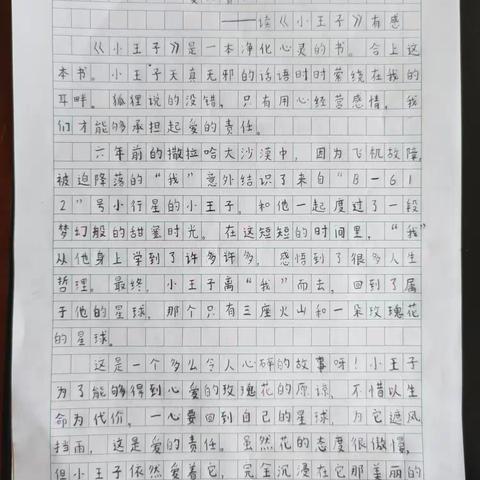 ——读《小王子》有感
《小王子》是一本净化心灵的书。合上这
本书。小王子天真无邪的话语时时萦绕在我的
耳畔。狐狸说的没错，只有用心经营感情，我
们才能够承担起爱的责任。
六年前的撒拉哈大沙漠中，因为飞机故障，
被迫降落的“我”意外结识了来自“B-61
2”号小行星的小王子。和他一起度过了一段
梦幻般的甜蜜时光。在这短短的时间里，“我”
从他身上学到了许多许多，感悟到了很多人生
哲理。最终，小王子离“我”而去，回到了属
于他的星球，那个只有三座火山和一朵玫瑰花
的星球。
这是一个多么令人心碎的故事呀！小王子
为了能够得到心爱的玫瑰花的原谅，不惜以生
命为代价，一心要回到自己的星球，为它遮风
挡雨，这是爱的责任。虽然花的态度很傲慢，
但小王子依然爱着它，完全沉浸在它那美丽的